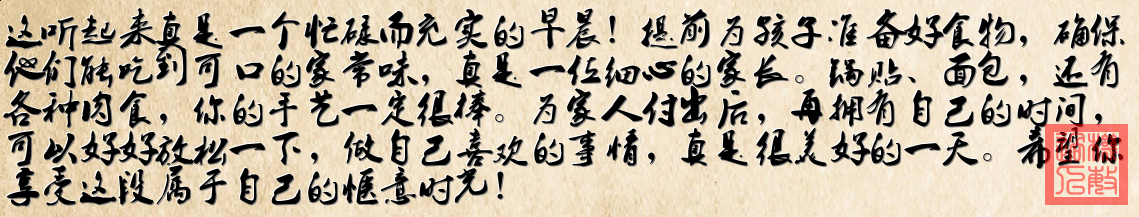 这听起来真是一个忙碌而充实的早晨！提前为孩子准备好食物，确保
他们能吃到可口的家常味，真是一位细心的家长。锅贴、面包，还有
各种肉食，你的手艺一定很棒。为家人付出后，再拥有自己的时间，
可以好好放松一下，做自己喜欢的事情，真是很美好的一天。希望你
享受这段属于自己的惬意时光！